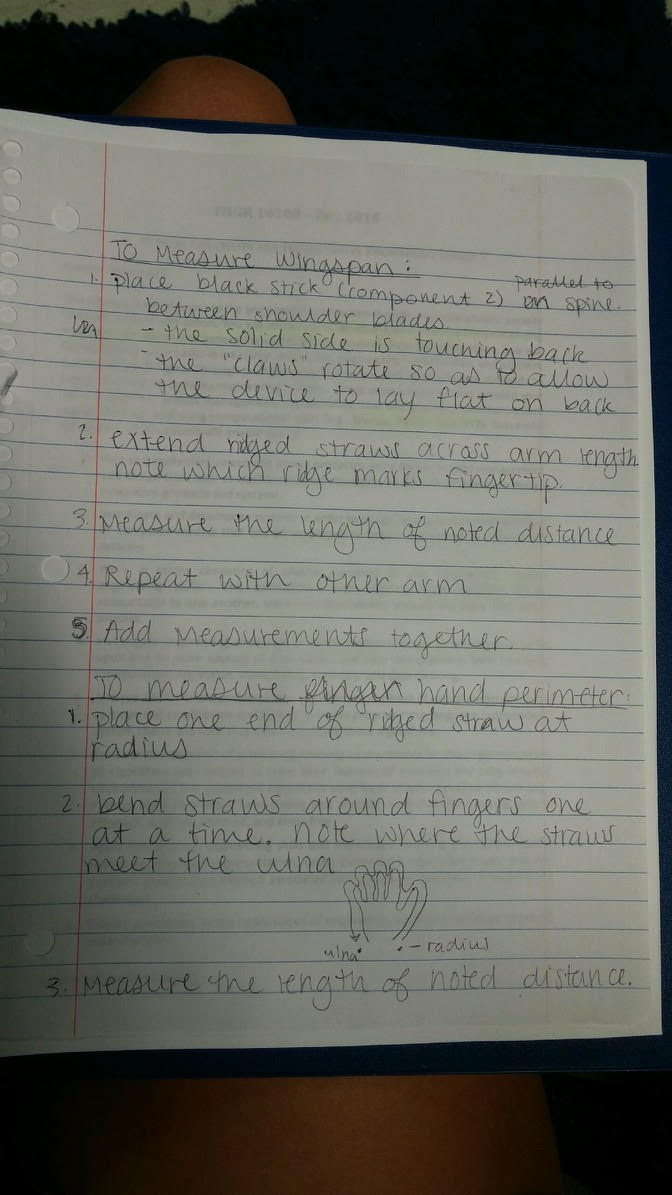 To Measure Wingspan:
1. Place black stick (component 2) on spine. parallel to
between shoulder blades.
- the solid side is touching back
- the "claws" rotate so as to allow
the device to lay flat on back
2. extend ridged straws across arm length
note which ridge marks fingertip.
3. Measure the length of noted distance
4. Repeat with other arm
5. Add measurements together.
To measure finger hand perimeter:
1. place one end of ridged straw at
radius
2. bend straws around fingers one
at a time. note where the straws
meet the ulna
ulna - radius
3. Measure the length of noted distance.